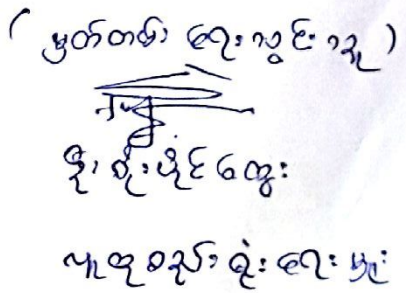 ( မှတ်တမ်း ရေးသွင်းသူ )
စိုးပိုင်ထွေး
လူထုစည်းရုံးရေးမှူး